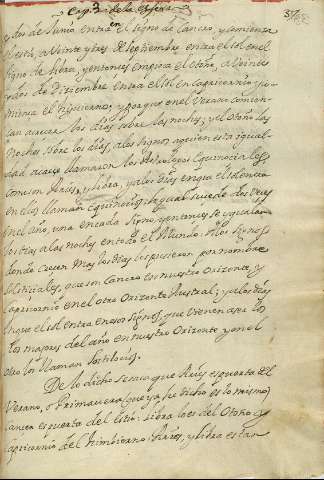 Cap.º 3º de la esfera
y dos de Junio entra en el signo de Cancro, y comiença
el estio, a Veinte y tres de Septiembre entra el sol en el
signo de libra, y entonces empieça el otoño, a Veinte
y dos de Diciembre entra el sol en Capricornio y co
miença el Hyuierno; y porque en el Verano comien
çan a crecer los dias sobre las noches; y el otoño las
noches sobre los dias, a los signos a quien esta igual
dad acaece llamaron los Astrologos Equinociales
como son Aries, y libra, y a los dias en que el sol entra
en ellos llaman Equinocios, lo qual sucede dos Veces
en el año, una en cada signo, y entonces se ygualan
los dias a las noches en todo el Mundo. A los signos
donde crecen mas los dias les pusieron por nombre
solsticiales, que son Cancro en nuestro orizonte, y
Capricornio en el otro orizonte Austral; y a los dias
que el sol entra en esos signos, que vienen a ser los
los mayores del año en nuestro orizonte y en el
otro lo llaman solsticios.
De lo dicho se saca que Aries es puerta del
Verano, o Primavera (que ya he dicho es lo mismo)
Cancro es puerta del estio: libra lo es del otoño, y
Capricornio del himbierno: Aries, y libra estan